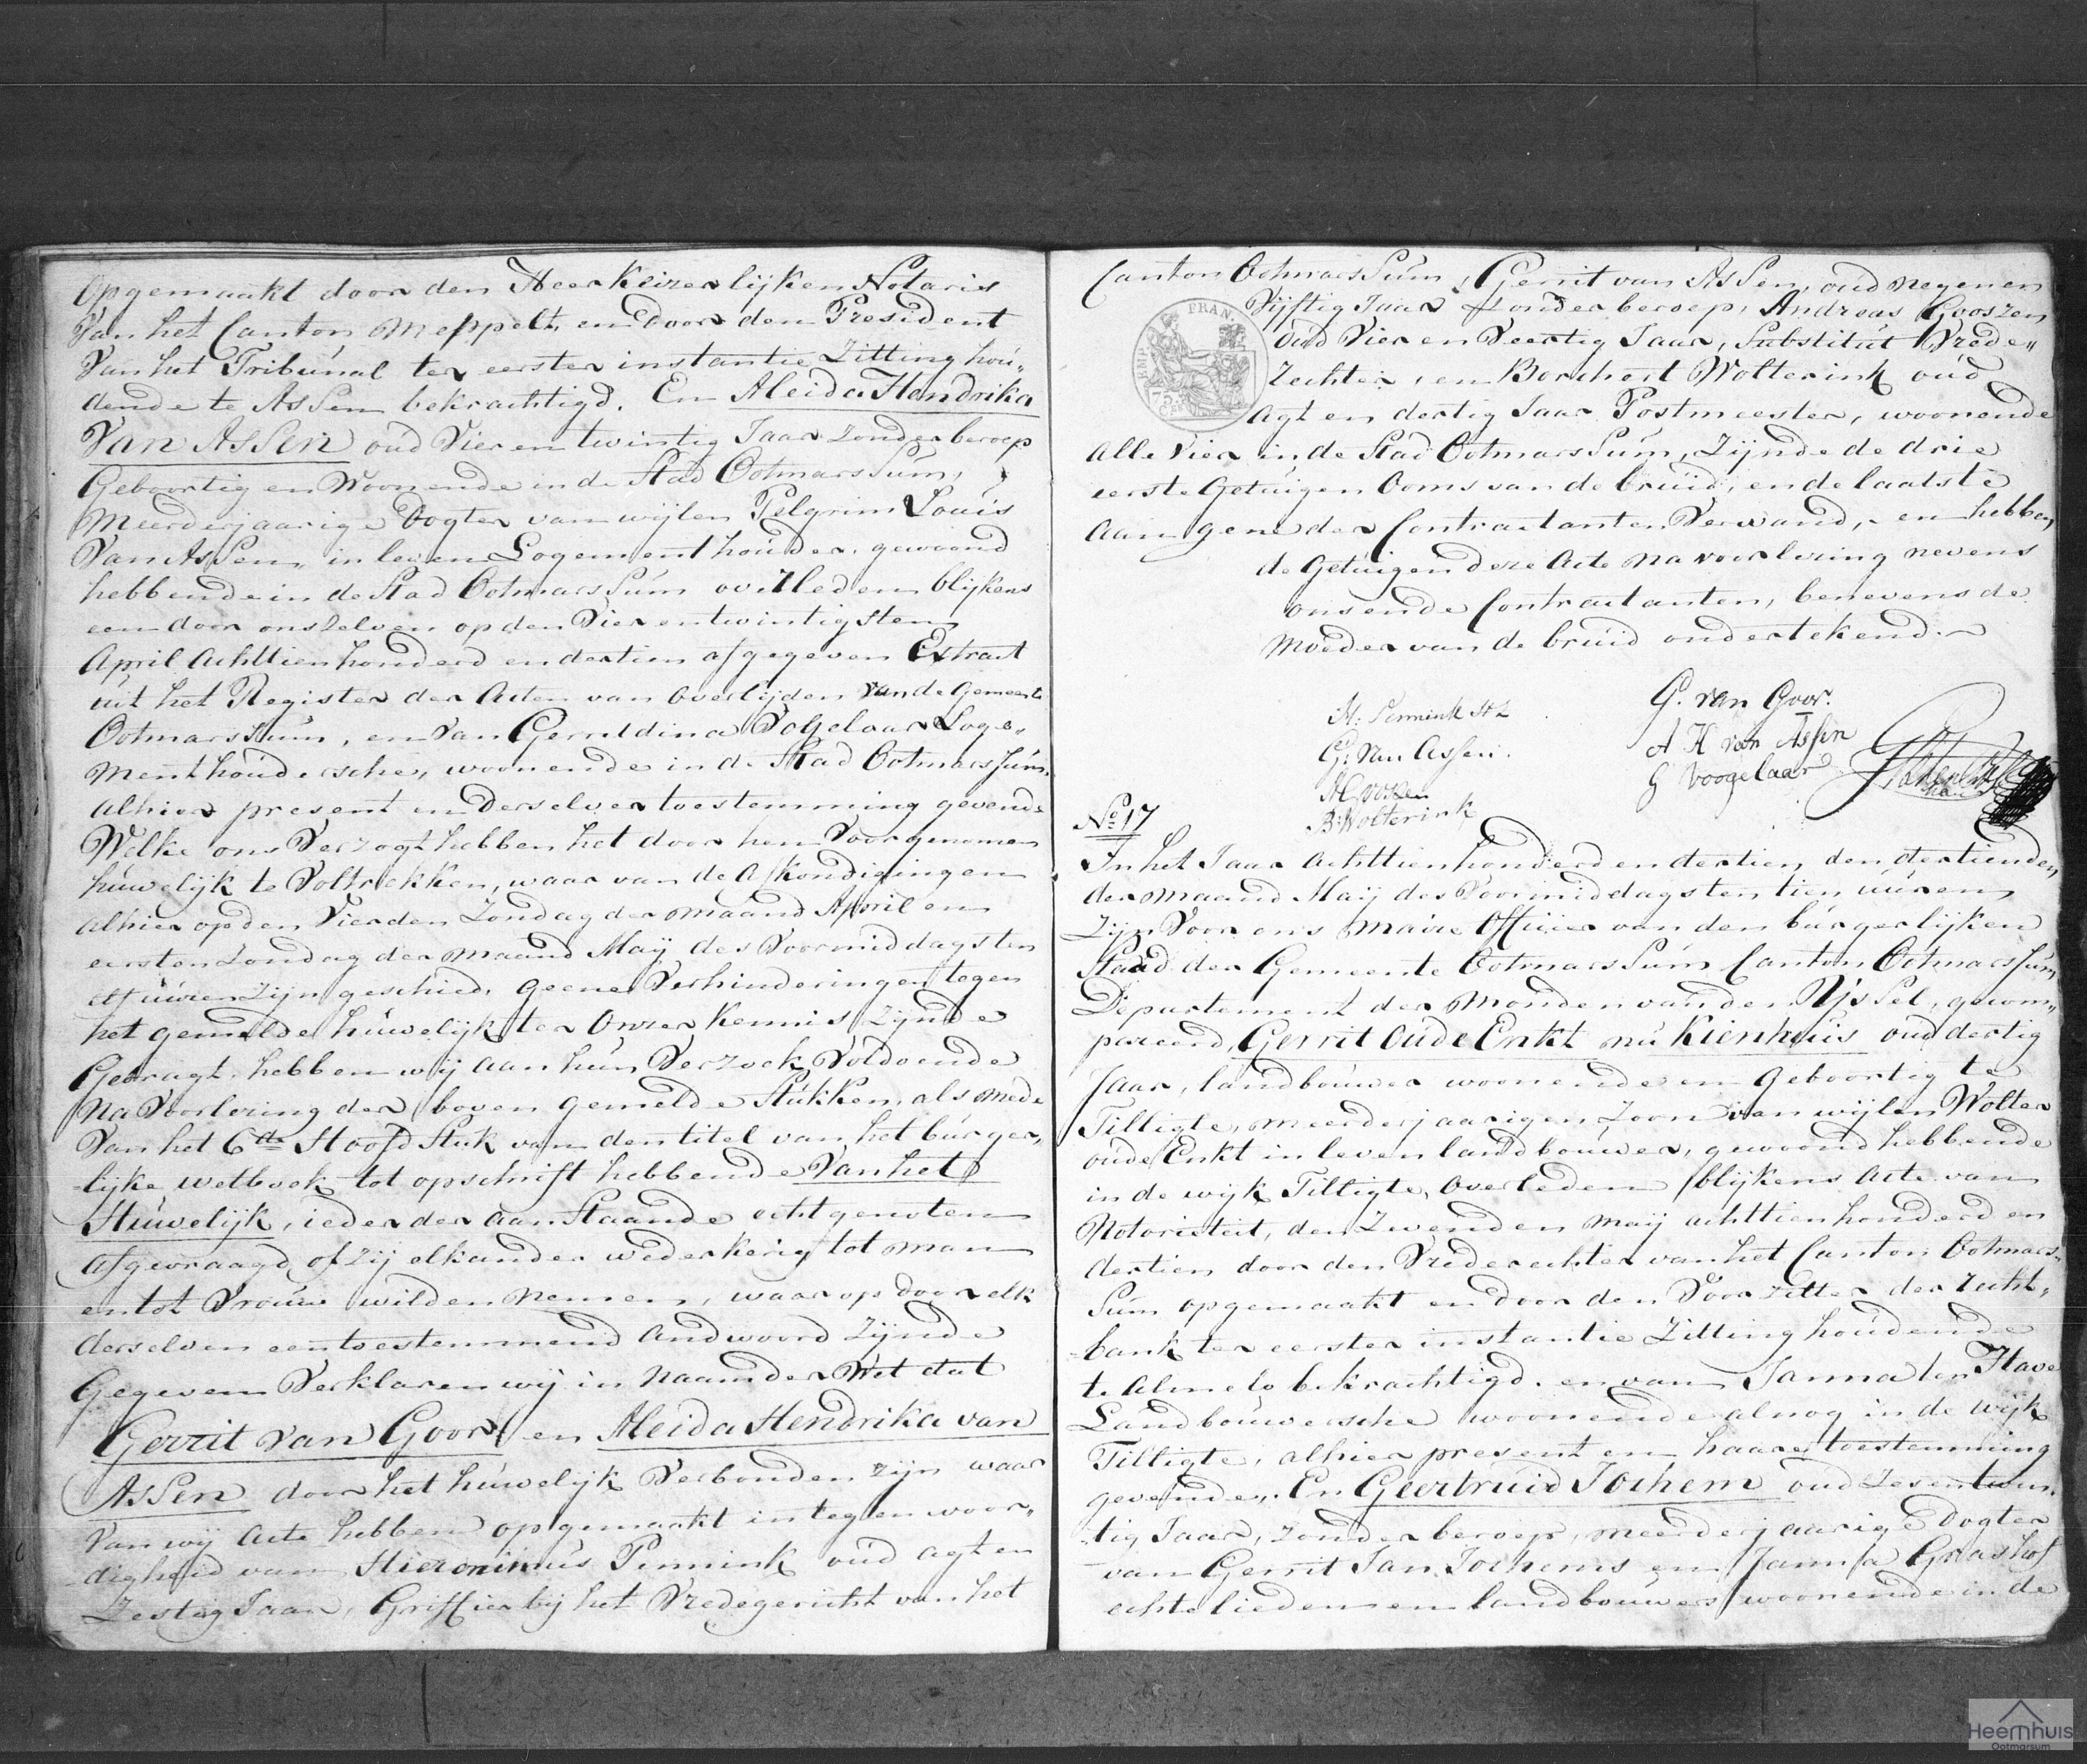 Opgemaakt door den Heer Keizerlijken Notaris
Van het Canton Meppelt, en door den President
Van het Tribunal ter eerster instantie Zitting hou„
dende te Assen bekrachtigd. En Aleida Hendrika
Van Assen oud Vier en twintig Jaar zonder beroep
Geboortig en Woonende in de Stad Ootmarssum,
Meerderjaarige Dogter van wijlen Pelgrim Louis
Van Assen, in leven Logementhouder, gewoond
hebbende in de Stad Ootmarssum overleden blijkens
een door ons zelven op den Vier en twintigsten
April Achttienhonderd en dertien afgegeven Extract
uit het Register der Acten van Overlijden van de Gemeente
Ootmarssum, en Van Gerreldina Vogelaar Loge„
menthoudersche, woonende in de Stad Ootmarssum,
alhier present en derselver toestemming gevende
Welke ons Verzogt hebben het door hen Voorgenomen
huwelijk te Voltrekken, waar van de Afkondigingen
alhier op den Vierden Zondag der maand April en
eersten Zondag der maand Maij des Voormiddags ten
elf uuren Zijn geschied. Geene Verhinderingen tegen
het gemelde huwelijk ter Onzer kennis Zijnde
Gebragt, hebben wij aan hun Verzoek Voldoende
Na Voorlezing der boven gemelde Stukken, als mede
Van het 6de Hoofd Stuk van den titel van het burger„
lijke wetboek tot opschrift hebbende Van het
Huwelijk, ieder der aan Staande echtgenoten
afgevraagd of Zij elkander wederkerig tot man
en tot Vrouw wilden nemen, waar op door elk
derselven een toestemmend Andwoord Zijnde
Gegeven Verklaren wij in Naam der Wet dat
Gerrit van Goor en Aleida Hendrika van
Assen door het huwelijk Verbonden zijn waar
Van wij Acte hebben opgemaakt in tegenwoor„
digheid van Hieronimus Pennink oud agt en
Zestig Jaar, Griffier bij het Vredegericht van het
Canton Ootmarssum, Gerrit van Assen, oud negen en
Vijftig Jaar zonder beroep, Andreas Gooszen
Oud Vier en Veertig Jaar, Substitut Vrede„
rechter, en Borchert Wolterink oud
Agt en dertig Jaar Postmeester, woonende
alle Vier in de Stad Ootmarssum, Zijnde de drie
eerste Getuigen Ooms van de bruid, en de laatste
aan gene der Contractanten Verwand, en hebben
de Getuigen deze Acte na voorlezing nevens
ons en de Contractanten, benevens de
Moeder van de bruid ondertekend.
FRAN.
75
H: Pennink
G. van Goor.
G. Van Assen.
A H van Assen
G Voogelaar
B: Wolterink
No. 17
In het Jaar Achttienhonderd en dertien den dertienden
der maand Maij des Voormiddags ten tien uuren
Zijn Voor ons Maire Officier van den burgerlijken
Staad der Gemeente Ootmarssum Canton Ootmarssum
Departement der Monden van den IJssel, gecom„
pareerd, Gerrit Oude Enkt nu Kienhuis oud dertig
Jaar, landbouwer woonende en Geboortig te
Tilligte, meerderjaarigen Zoon van wijlen Wolter
oude Enkt in leven landbouwer, gewoond hebbende
in de wijk Tilligte, Overleden blijkens Acte van
Notoriteit, den Zevenden Maij achttienhonderd en
dertien door den Vrederechter van het Canton Ootmars„
Sum opgemaakt en door den Voorzitter der recht„
bank ter eerster instantie Zitting houdende
te Almelo bekrachtigd. en van Janna ten Have
Landbouwersche woonende alnog in de wijk
Tilligte, alhier present en haare toestemming
gevende. En Geertruid Jochem oud Zes en twin„
tig Jaar, zonder beroep, meerderjaarige Dogter
van Gerrit Jan Jochems en Janna Grashof
echtelieden en landbouwers woonende in de
Heemhuis
Ootmarsum